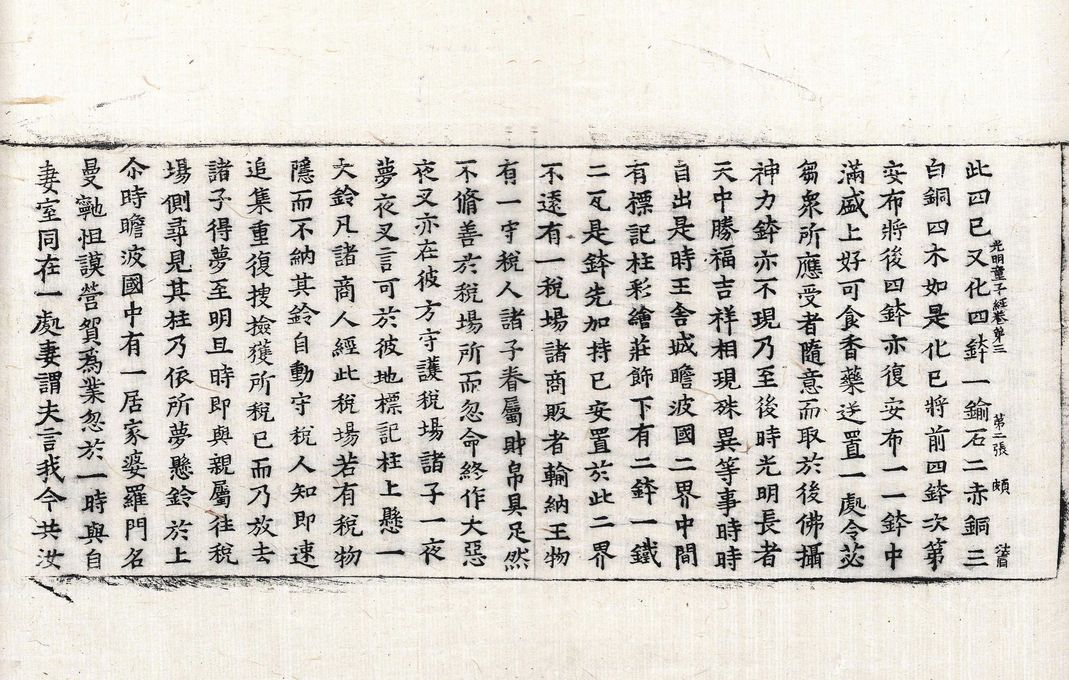 此四已又化四鉢一鍮石二赤銅三
光明童子經卷第三　第二張　頗
白銅四木如是化已將前四鉢次第
安布將後四鉢亦復安布一一鉢中
滿盛上好可食香藥送置一處令苾
芻衆所應受者隨意而取於後佛攝
神力鉢亦不現乃至後時光明長者
天中勝福吉祥相現殊異等事時時
自出是時王舍城瞻波國二界中間
有標記柱彩繪莊飾下有二鉢一鐵
二瓦是鉢先加持已安置於此二界
不遠有一稅場諸商販者輸納王物
有一守稅人諸子眷屬財帛具足然
不脩善於稅場所而忽命終作大惡
夜叉亦在彼方守護稅場諸子一夜
夢夜叉言可於彼地標記柱上懸一
大鈴凡諸商人經此稅場若有稅物
隱而不納其鈴自動守稅人知即速
追集重復搜撿獲所稅已而乃放去
諸子得夢至明旦時即與親屬往稅
場側尋見其柱乃依所夢懸鈴於上
尒時瞻波國中有一居家婆羅門名
曼𪗋怛謨營賀爲業忽於一時與自
妻室同在一處妻謂夫言我今共汝